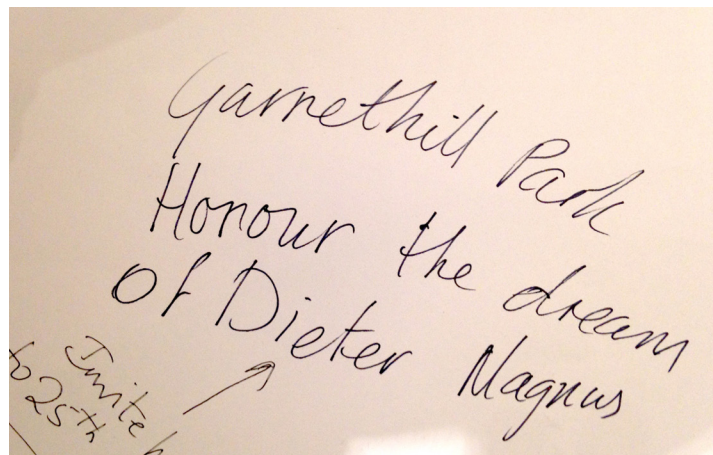 Garnethill Park
Honour the dream
Of Dieter Magnus
Invite
to 25th